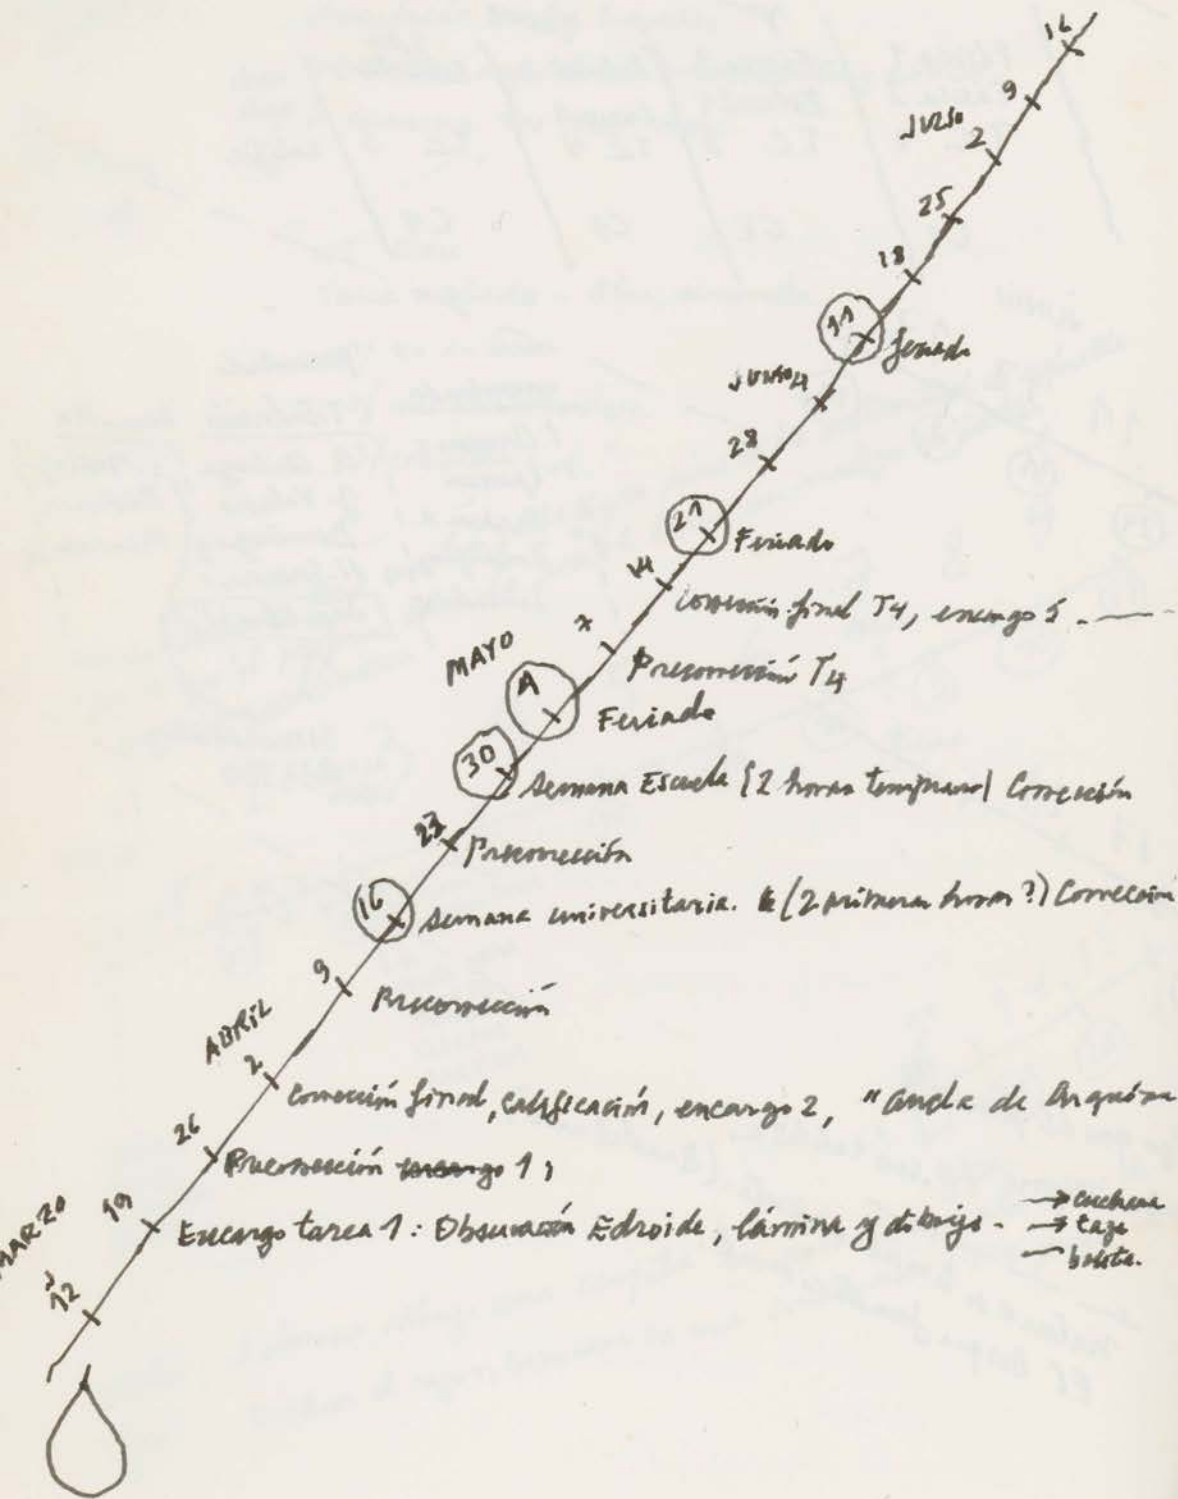 16
9
JULIO
2
25
18
11 feriado
JUNIO 4
28
21 Feriado
14
Corrección final T4, encargo 5.
7
MAYO
Precorrección T4
1 Feriado
30 Semana Escuela (2 horas temprano) Corrección
23 Precorrección
16 Semana universitaria. (2 primeras horas?) Corrección
9 Precorrección
ABRIL
2 Corrección final, calificación, encargo 2, "
26 Precorrección 1,
19 Encargo tarea 1: lámina y dibujo. → cuchara
→ taza
bolita.
MARZO
12